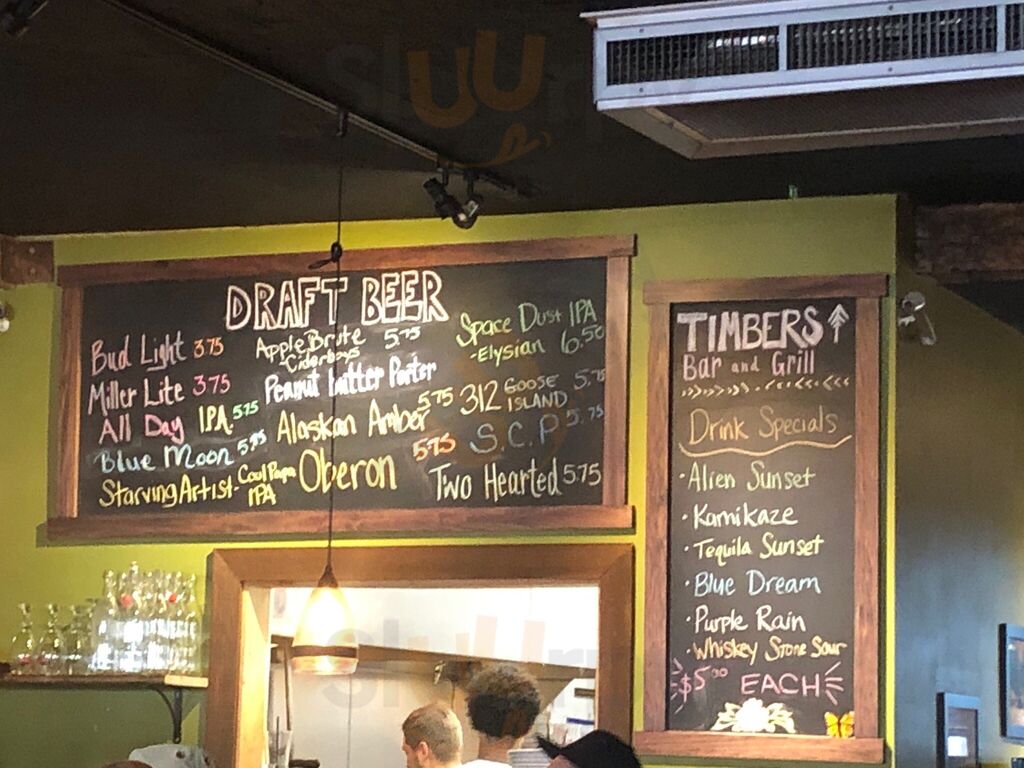 DRAFT BEER
Bud Light 3.75
Miller Lite 3.75
All Day IPA 5.75
Blue Moon 5.75
Starving Artist - Cool Papa
IPA
Apple Brute 5.75
Ciderboys
Peanut butter Porter
Alaskan Amber 5.75
Oberon 5.75
Space Dust IPA
-Elysian 6.50
312 GOOSE ISLAND 5.75
S.C.P 5.75
Two Hearted 5.75
TIMBERS
Bar and Grill
>>>>>>> <<<<<<<
Drink Specials
• Alien Sunset
• Kamikaze
• Tequila Sunset
• Blue Dream
• Purple Rain
• Whiskey Stone Sour
$5.00 EACH
Sluurpy
Sluurpy